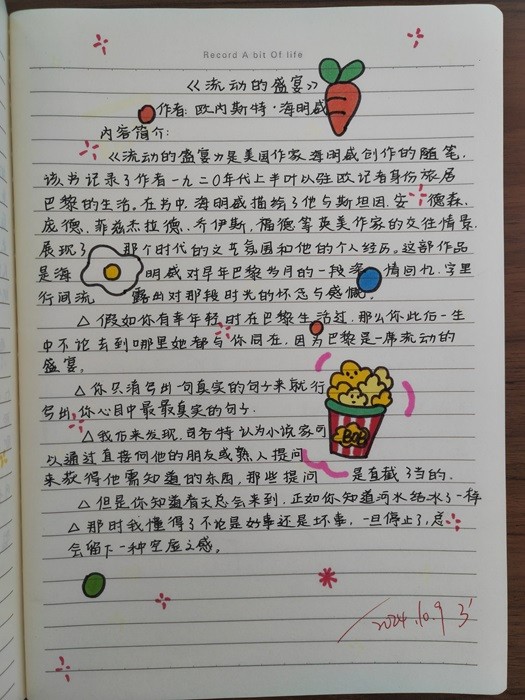 Record A bit Of life
《流动的盛宴》
作者:欧内斯特·海明威
内容简介:
《流动的盛宴》是美国作家海明威创作的随笔,
该书记录了作者一九二0年代上半叶以驻欧记者身份旅居
巴黎的生活。在书中,海明威描绘了他与斯坦因、安德森、
庞德、菲兹杰拉德、乔伊斯、福德等英美作家的交往情景,
展现了那个时代的文艺氛围和他的个人经历。这部作品
是海明威对早年巴黎岁月的一段深情回忆,字里
行间流露出对那段时光的怀念与感慨。
△假如你有幸年轻时在巴黎生活过,那么你此后一生
中不论去到哪里她都与你同在,因为巴黎是一席流动的
盛宴。
△你只消写出一句真实的句子来就行
写出你心目中最最真实的句子.
△我后来发现,司各特认为小说家可
以通过直接向他的朋友或熟人提问
来获得他需知道的东西,那些提问是直截了当的.
△但是你知道春天总会来到,正如你知道河水结冰了一样
△那时我懂得了不论是好事还是坏事,一旦停止了,总
会留下一种空虚之感。
BOB
2024.10.9 3'